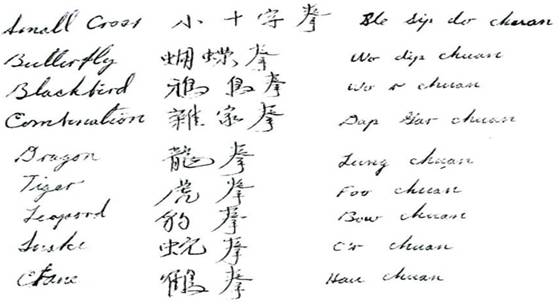 Small Cross 小十字拳 Sle sip do chuan
Butterfly 蝴蝶拳 Wo dip chuan
Blackbird 鴉鳥拳 Wo r chuan
Combination 雜家拳 Dap Gar chuan
Dragon 龍拳 Lung chuan
Tiger 虎拳 Foo chuan
Leopard 豹拳 Bow chuan
Snake 蛇拳 chuan
Crane 鶴拳 Hau chuan